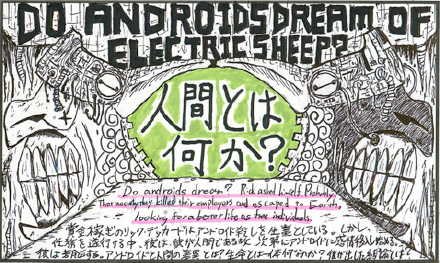 DO ANDROIDS DREAM OF
ELECTRIC SHEEP?
人間とは
何か?
Do androids dream? Rick asked himself. Probably;
That's occasionally they killed their employers and escaped to Earth,
looking for a better life as free individuals.
賞金稼ぎのリック・デッカードはアンドロイド殺しを生業としている。しかし
任務を遂行する中、彼は、彼が人間である故、次第にアンドロイドに感情移入し始める。
彼は自問する。アンドロイドと人間の差異とは?生命とは一体何なのか?彼が出した結論とは?